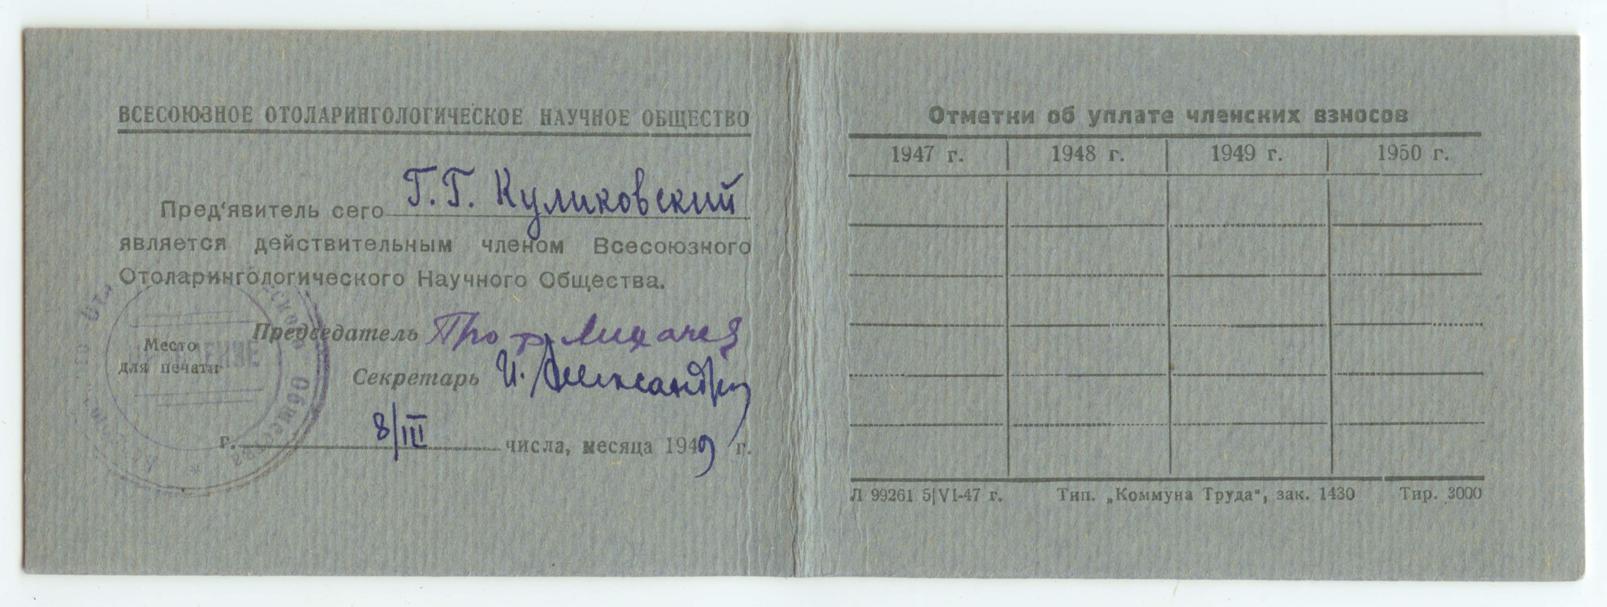 ВСЕСОЮЗНОЕ ОТОЛАРИНГОЛОГИЧЕСКОЕ НАУЧНОЕ ОБЩЕСТВО
Пред'явитель сего Г.Г. Куликовский
является действительным членом Всесоюзного
Отоларингологического Научного Общества.
Председатель Проф Лихачев
Место
для печати
Секретарь И. Александр
г. 8/III числа, месяца 1949 г.
Общества
Отметки об уплате членских взносов
1947 г. 1948 г. 1949 г. 1950 г.
Л 99261 5|VI-47 г. Тип. „Коммуна Труда", зак. 1430 Тир. 3000